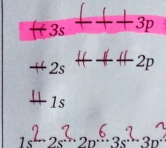 3s 3p
2s 2p
1s
1s² 2s² 2p⁶ 3s² 3p³